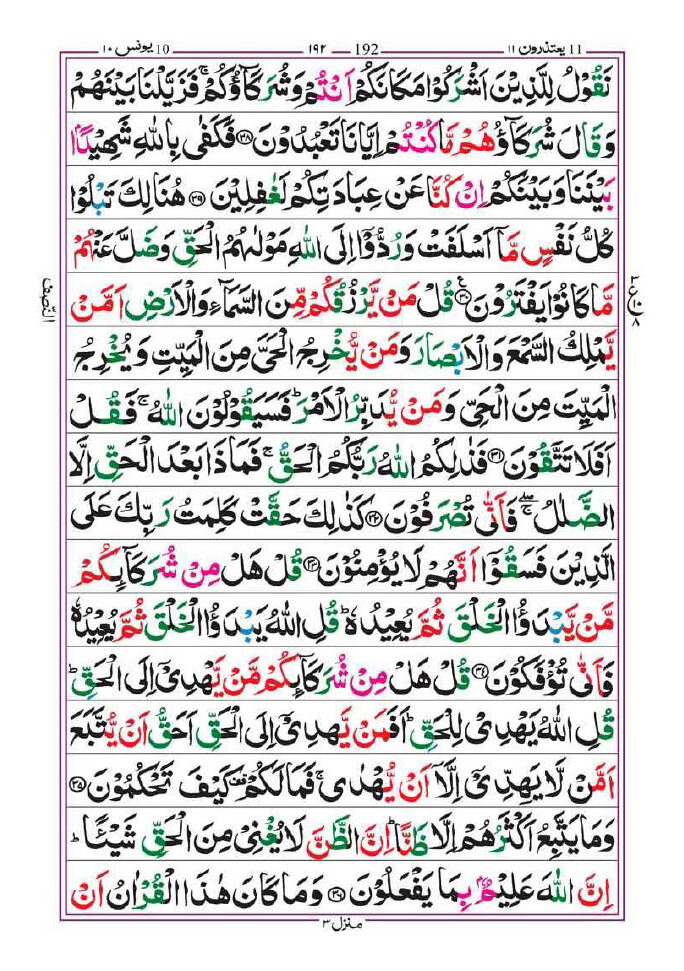 11 یعتذرون ۱۱ 192 ۱۹۲ 10 یونس ۱۰
نَقُوۡلُ لِلَّذِيۡنَ اَشۡرَكُوۡا مَكَانَكُمۡ اَنۡتُمۡ وَشُرَكَآؤُكُمۡ‌ۚ فَزَيَّلۡنَا بَيۡنَهُمۡ‌
وَقَالَ شُرَكَآؤُهُمۡ مَّا كُنۡتُمۡ اِيَّانَا تَعۡبُدُوۡنَ ۞۲۸ فَكَفٰى بِاللّٰهِ شَهِيۡدًۢا
بَيۡنَنَا وَبَيۡنَكُمۡ اِنۡ كُنَّا عَنۡ عِبَادَتِكُمۡ لَغٰفِلِيۡنَ ۞۲۹ هُنَالِكَ تَبۡلُوۡا
كُلُّ نَفۡسٍ مَّاۤ اَسۡلَفَتۡ وَرُدُّوۡۤا اِلَى اللّٰهِ مَوۡلٰٮهُمُ الۡحَقِّ‌ وَضَلَّ عَنۡهُمۡ
مَّا كَانُوۡا يَفۡتَرُوۡنَ ۞۳۰ قُلۡ مَنۡ يَّرۡزُقُكُمۡ مِّنَ السَّمَآءِ وَالۡاَرۡضِ اَمَّنۡ
يَّمۡلِكُ السَّمۡعَ وَالۡاَبۡصَارَ وَمَنۡ يُّخۡرِجُ الۡحَىَّ مِنَ الۡمَيِّتِ وَيُخۡرِجُ
الۡمَيِّتَ مِنَ الۡحَىِّ وَمَنۡ يُّدَبِّرُ الۡاَمۡرَ‌ؕ فَسَيَـقُوۡلُوۡنَ اللّٰهُ‌ۚ فَقُلۡ
اَفَلَا تَتَّقُوۡنَ ۞۳۱ فَذٰلِكُمُ اللّٰهُ رَبُّكُمُ الۡحَـقُّ‌ ۚ فَمَاذَا بَعۡدَ الۡحَـقِّ اِلَّا
الضَّلٰلُ‌ ۖۚ فَاَنّٰى تُصۡرَفُوۡنَ ۞۳۲ كَذٰلِكَ حَقَّتۡ كَلِمَتُ رَبِّكَ عَلَى
الَّذِيۡنَ فَسَقُوۡۤا اَنَّهُمۡ لَا يُؤۡمِنُوۡنَ ۞۳۳ قُلۡ هَلۡ مِنۡ شُرَكَآٮِٕكُمۡ
مَّنۡ يَّبۡدَؤُا الۡخَـلۡقَ ثُمَّ يُعِيۡدُهٗ ‌ؕ قُلِ اللّٰهُ يَـبۡدَؤُا الۡخَـلۡقَ ثُمَّ يُعِيۡدُهٗ‌
فَاَنّٰى تُؤۡفَكُوۡنَ ۞۳۴ قُلۡ هَلۡ مِنۡ شُرَكَآٮِٕكُمۡ مَّنۡ يَّهۡدِىۡۤ اِلَى الۡحَـقِّ‌ؕ
قُلِ اللّٰهُ يَهۡدِىۡ لِلۡحَقِّ‌ؕ اَفَمَنۡ يَّهۡدِىۡۤ اِلَى الۡحَقِّ اَحَقُّ اَنۡ يُّتَّبَعَ
اَمَّنۡ لَّا يَهِدِّىۡۤ اِلَّاۤ اَنۡ يُّهۡدٰى‌ۚ فَمَا لَكُمۡ كَيۡفَ تَحۡكُمُوۡنَ ۞۳۵
وَمَا يَتَّبِعُ اَكۡثَرُهُمۡ اِلَّا ظَنًّا‌ؕ اِنَّ الظَّنَّ لَا يُغۡنِىۡ مِنَ الۡحَـقِّ شَيۡئًا‌ؕ
اِنَّ اللّٰهَ عَلِيۡمٌۢ بِمَا يَفۡعَلُوۡنَ ۞۳۶ وَمَا كَانَ هٰذَا الۡقُرۡاٰنُ اَنۡ
منزل ۳
النّصف